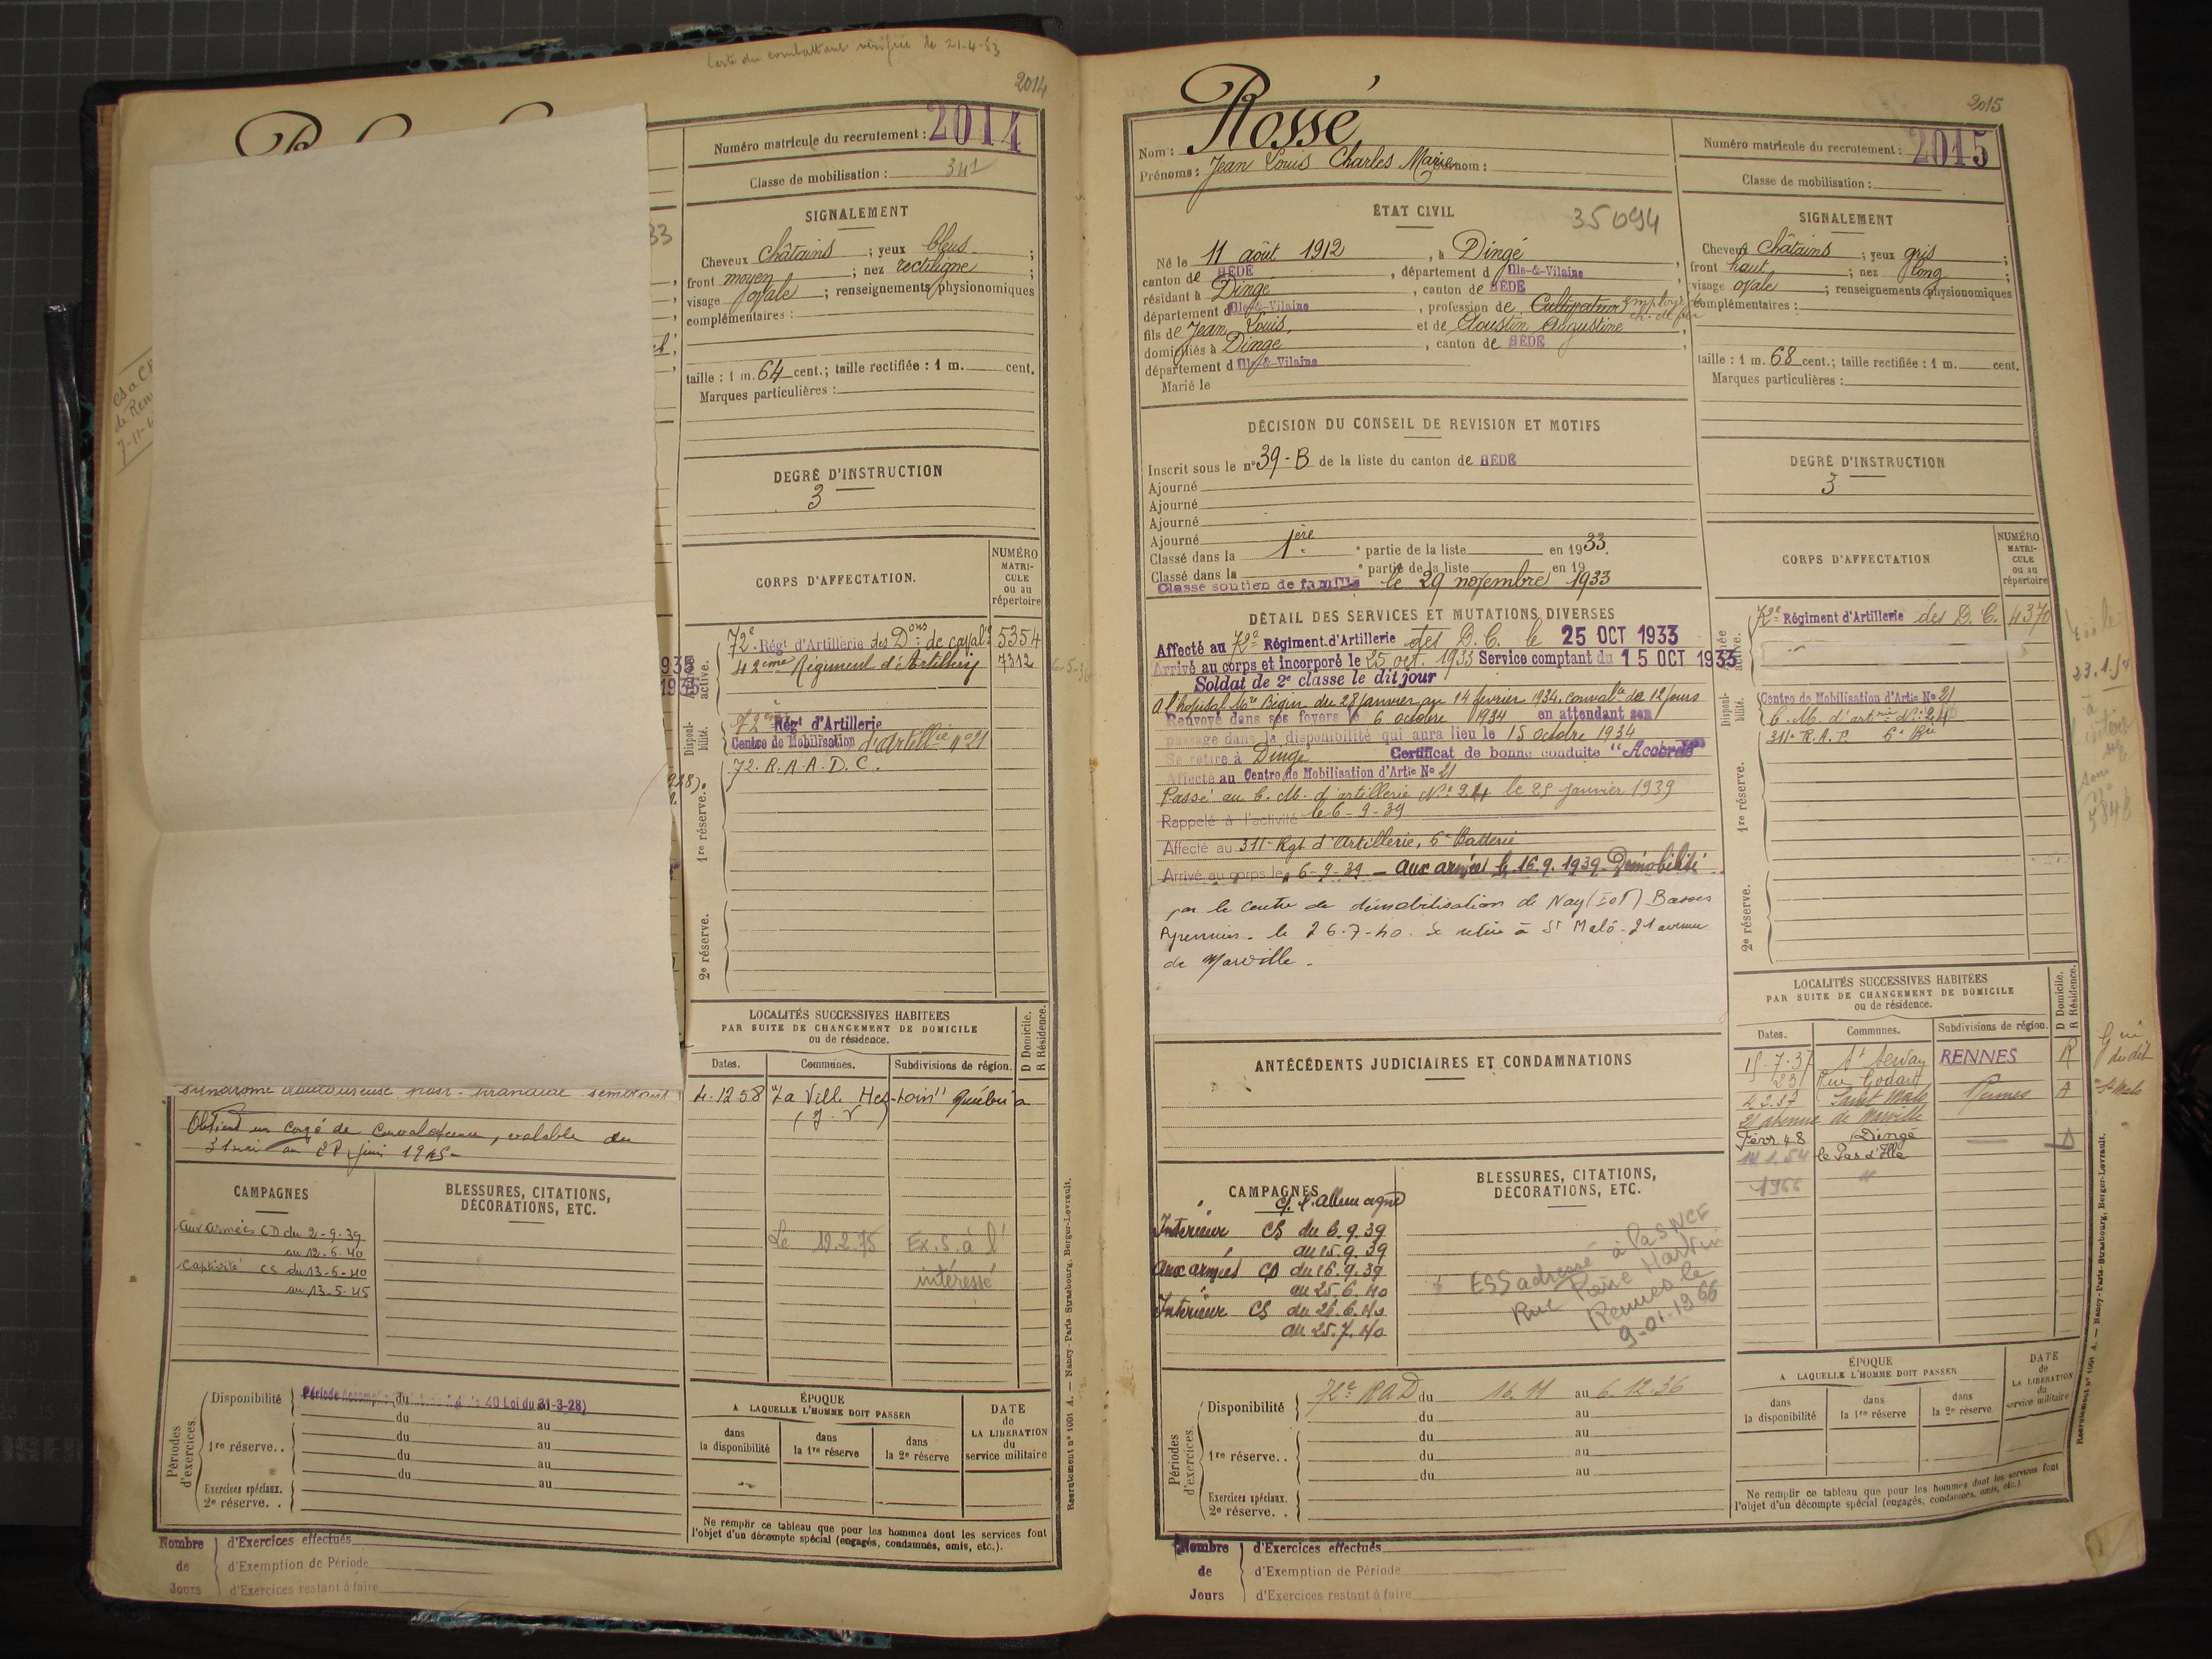 Carte du combattant vérifiée le 21-4-53
2014
Numéro matricule du recrutement : 2014
Classe de mobilisation : 341
SIGNALEMENT
Cheveux châtains ; yeux bleus ;
front moyen ; nez rectiligne ;
visage ovale ; renseignements physionomiques
complémentaires :
taille : 1 m. 64 cent.; taille rectifiée : 1 m. cent.
Marques particulières :
DEGRÉ D'INSTRUCTION
3
CORPS D'AFFECTATION.
NUMÉRO
MATRI-
CULE
ou au
répertoire
Armée active.
72e Régt d'Artillerie des Dons de caval. 5354
42eme Régiment d'Artillerie 7312
Disponi-
bilité.
72eme Régt d'Artillerie
Centre de Mobilisation d'Artillie n° 21
1re réserve.
72. R.A.A.D.C.
2e réserve.
LOCALITÉS SUCCESSIVES HABITÉES
PAR SUITE DE CHANGEMENT DE DOMICILE
ou de résidence.
D Domicile.
R Résidence.
Dates. Communes. Subdivisions de région.
4.12.58 "La Ville
Le 19.2.75 Ex.S. à l'
intéressé
Obtient un congé de convalescence, valable du
31 mai au juin 1945
CAMPAGNES
BLESSURES, CITATIONS,
DÉCORATIONS, ETC.
Aux armées CD du 2-9-39
au 12-6-40
Captivité CS du 13-6-40
au 13-5-45
Périodes
d'exercices.
Disponibilité du 40 Loi du 31-3-28)
du au
1re réserve.. du au
du au
du au
Exercices spéciaux.
2e réserve. .
ÉPOQUE
A LAQUELLE L'HOMME DOIT PASSER
dans
la disponibilité
dans
la 1re réserve
dans
la 2e réserve
DATE
de
LA LIBÉRATION
du
service militaire
Ne remplir ce tableau que pour les hommes dont les services font
l'objet d'un décompte spécial (engagés, condamnés, omis, etc.).
Nombre d'Exercices effectués
de d'Exemption de Période
Jours d'Exercices restant à faire
Recrutement n° 1001 A. — Nancy-Paris-Strasbourg, Berger-Levrault.
2015
Nom : Rossé
Prénoms : Jean Louis Charles Marie Surnom :
Numéro matricule du recrutement : 2015
Classe de mobilisation :
ÉTAT CIVIL
35094
Né le 11 août 1912, à Dingé
canton de HÉDÉ, département d'Ille-&-Vilaine
résidant à Dingé, canton de HÉDÉ
département d'Ille-&-Vilaine, profession de Cultivateur employé ch. de fer
fils de Jean Louis, et de Aoustin Augustine
domiciliés à Dingé, canton de HÉDÉ
département d'Ille-&-Vilaine
Marié le
SIGNALEMENT
Cheveux châtains ; yeux gris ;
front haut ; nez long ;
visage ovale ; renseignements physionomiques
complémentaires :
taille : 1 m. 68 cent.; taille rectifiée : 1 m. cent.
Marques particulières :
DÉCISION DU CONSEIL DE REVISION ET MOTIFS
Inscrit sous le n° 39-B de la liste du canton de HÉDÉ
Ajourné
Ajourné
Ajourné
Ajourné
Classé dans la 1ère partie de la liste en 1933.
Classé dans la partie de la liste en 19
Classé soutien de famille le 29 novembre 1933
DEGRÉ D'INSTRUCTION
3
DÉTAIL DES SERVICES ET MUTATIONS DIVERSES
Affecté au 72e Régiment d'Artillerie des D.C. le 25 OCT 1933
Arrivé au corps et incorporé le 25 oct. 1933 Service comptant du 15 OCT 1933
Soldat de 2e classe le dit jour
A l'hôpital Bégin du 28 janvier au 14 février 1934. conval. de 12 jours
Renvoyé dans ses foyers le 6 octobre 1934 en attendant son
passage dans la disponibilité qui aura lieu le 15 octobre 1934
Se retire à Dingé Certificat de bonne conduite "Accordé"
Affecté au Centre de Mobilisation d'Artie No 21
Passé au C.M. d'artillerie No 24 le 25 janvier 1939
Rappelé à l'activité le 6-9-39
Affecté au 311e Rgt d'Artillerie, 6e Batterie
Arrivé au corps le 6-9-39 — aux armées le 16.9.1939. Démobilisé
par le centre de démobilisation de Nay Basses
Pyrennées. le 26-7-40. Se retire à St Malo - 21 avenue
de Marville.
CORPS D'AFFECTATION
NUMÉRO
MATRI-
CULE
ou au
répertoire
Armée active.
72e Régiment d'Artillerie des D.C. 4370
Disponi-
bilité.
Centre de Mobilisation d'Artie No 21
C.M. d'artrie No 24
311e R.A.P. 6e Bie
1re réserve.
2e réserve.
23.1.54
ANTÉCÉDENTS JUDICIAIRES ET CONDAMNATIONS
LOCALITÉS SUCCESSIVES HABITÉES
PAR SUITE DE CHANGEMENT DE DOMICILE
ou de résidence.
D Domicile.
R Résidence.
Dates. Communes. Subdivisions de région.
15.7.37 St Servan RENNES R
23 Rue Godard
Saint Malo Rennes A
21 avenue de Marville
Fevr 48 Dingé — D
le Pas d'Ille
1966 "
St Malo
CAMPAGNES
c/ l'allemagne
Intérieur CS du 6.9.39
au 15.9.39
Aux armées CD du 16.9.39
au 25.6.40
Intérieur CS du 26.6.40
au 25.7.40
BLESSURES, CITATIONS,
DÉCORATIONS, ETC.
ESS adressé à la SNCF
Rue Pierre Martin
Rennes le
9-01-1966
Périodes
d'exercices.
Disponibilité 72e RAD du 16.11 au 6.12.36
du au
1re réserve.. du au
du au
du au
Exercices spéciaux.
2e réserve. .
ÉPOQUE
A LAQUELLE L'HOMME DOIT PASSER
dans
la disponibilité
dans
la 1re réserve
dans
la 2e réserve
DATE
de
LA LIBÉRATION
du
service militaire
Ne remplir ce tableau que pour les hommes dont les services font
l'objet d'un décompte spécial (engagés, condamnés, omis, etc.).
Nombre d'Exercices effectués
de d'Exemption de Période
Jours d'Exercices restant à faire
Recrutement n° 1001 A. — Nancy-Paris-Strasbourg, Berger-Levrault.